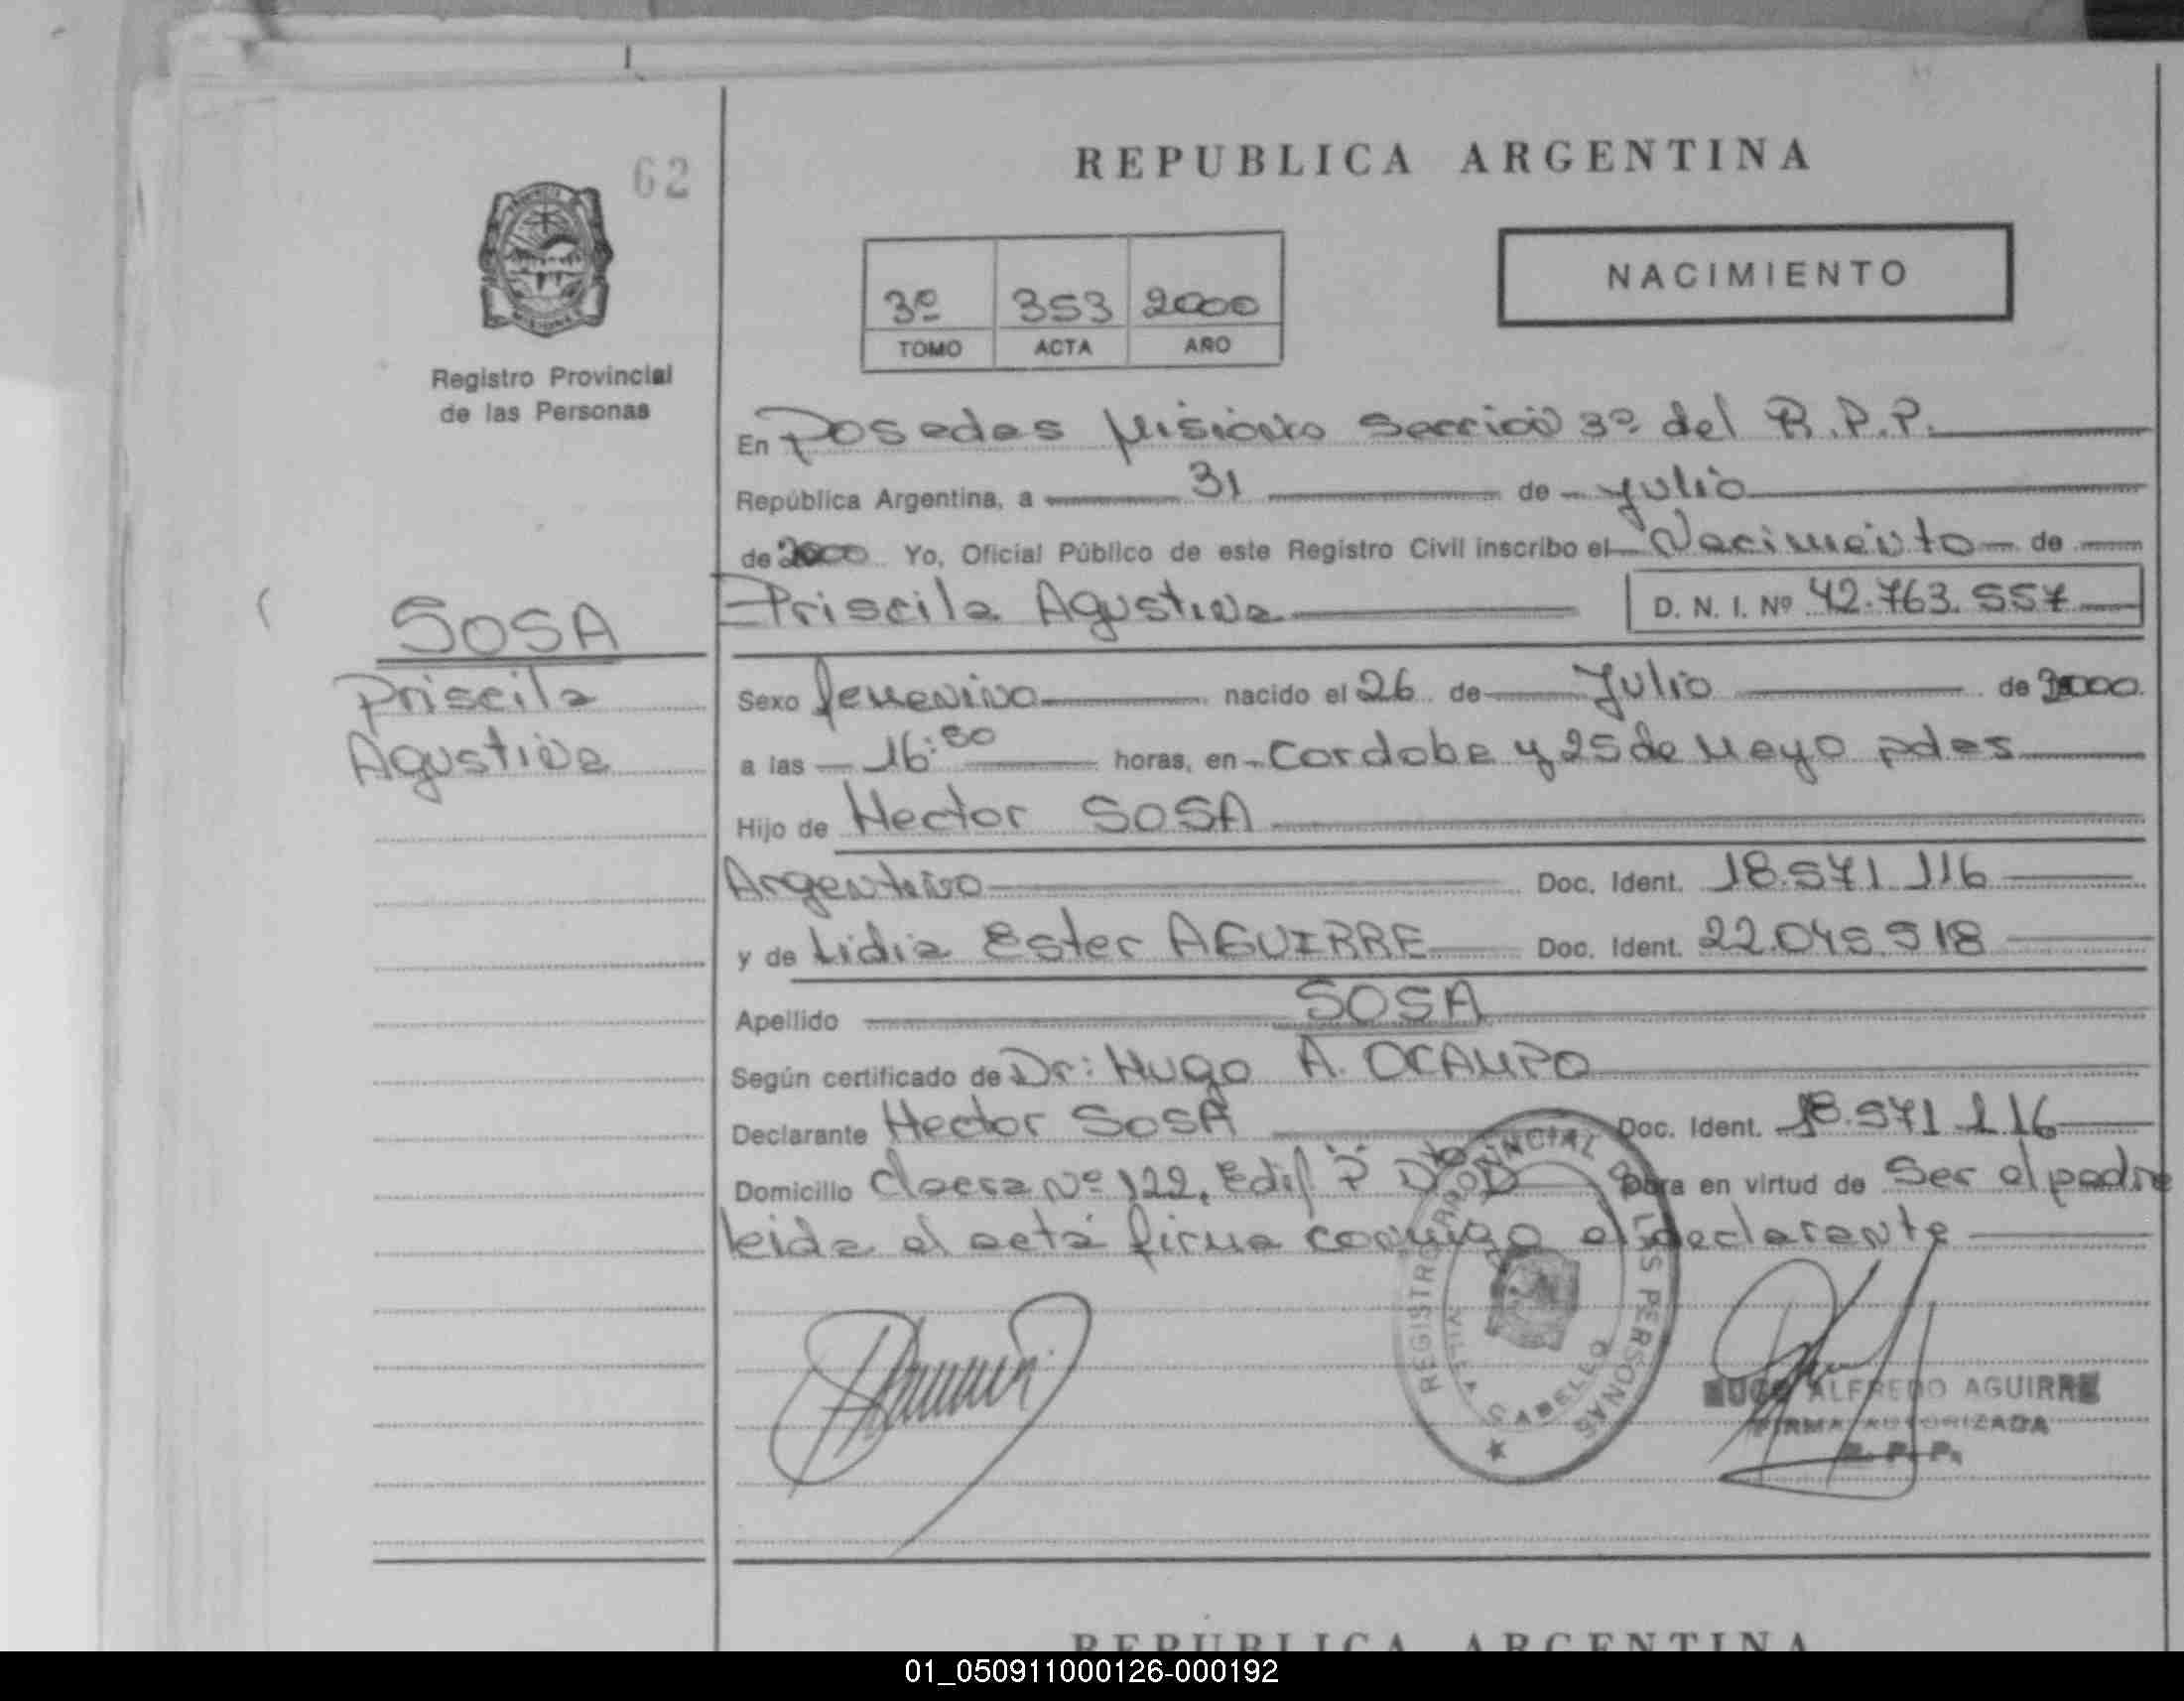 62
REPUBLICA ARGENTINA
3º 353 2000
TOMO ACTA AÑO
NACIMIENTO
Registro Provincial
de las Personas
En Posadas Misiones Sección 3º del R.P.P.
República Argentina, a 31 de Julio
de 2000 Yo, Oficial Público de este Registro Civil inscribo el Nacimiento de
Priscila Agustina D. N. I. Nº 42.763.557
SOSA
Priscila
Agustina
Sexo femenino nacido el 26 de Julio de 2000
a las 16:30 horas, en Cordoba y 25 de Mayo pdas
Hijo de Hector SOSA
Argentino Doc. Ident. 18.571.116
y de Lidia Ester AGUIRRE Doc. Ident. 22.045.918
Apellido SOSA
Según certificado de Dr: Hugo A. OCAMPO
Declarante Hector SOSA Doc. Ident. 18.571.116
Domicilio Nº 122, Edif P Obra en virtud de Ser el padre
leida el acta firma conmigo el declarante
REGISTRO PROVINCIAL DE LAS PERSONAS
VILLA CABELLO
HUGO ALFREDO AGUIRRE
FIRMA AUTORIZADA
R. P. P.
REPUBLICA ARGENTINA
01_050911000126-000192